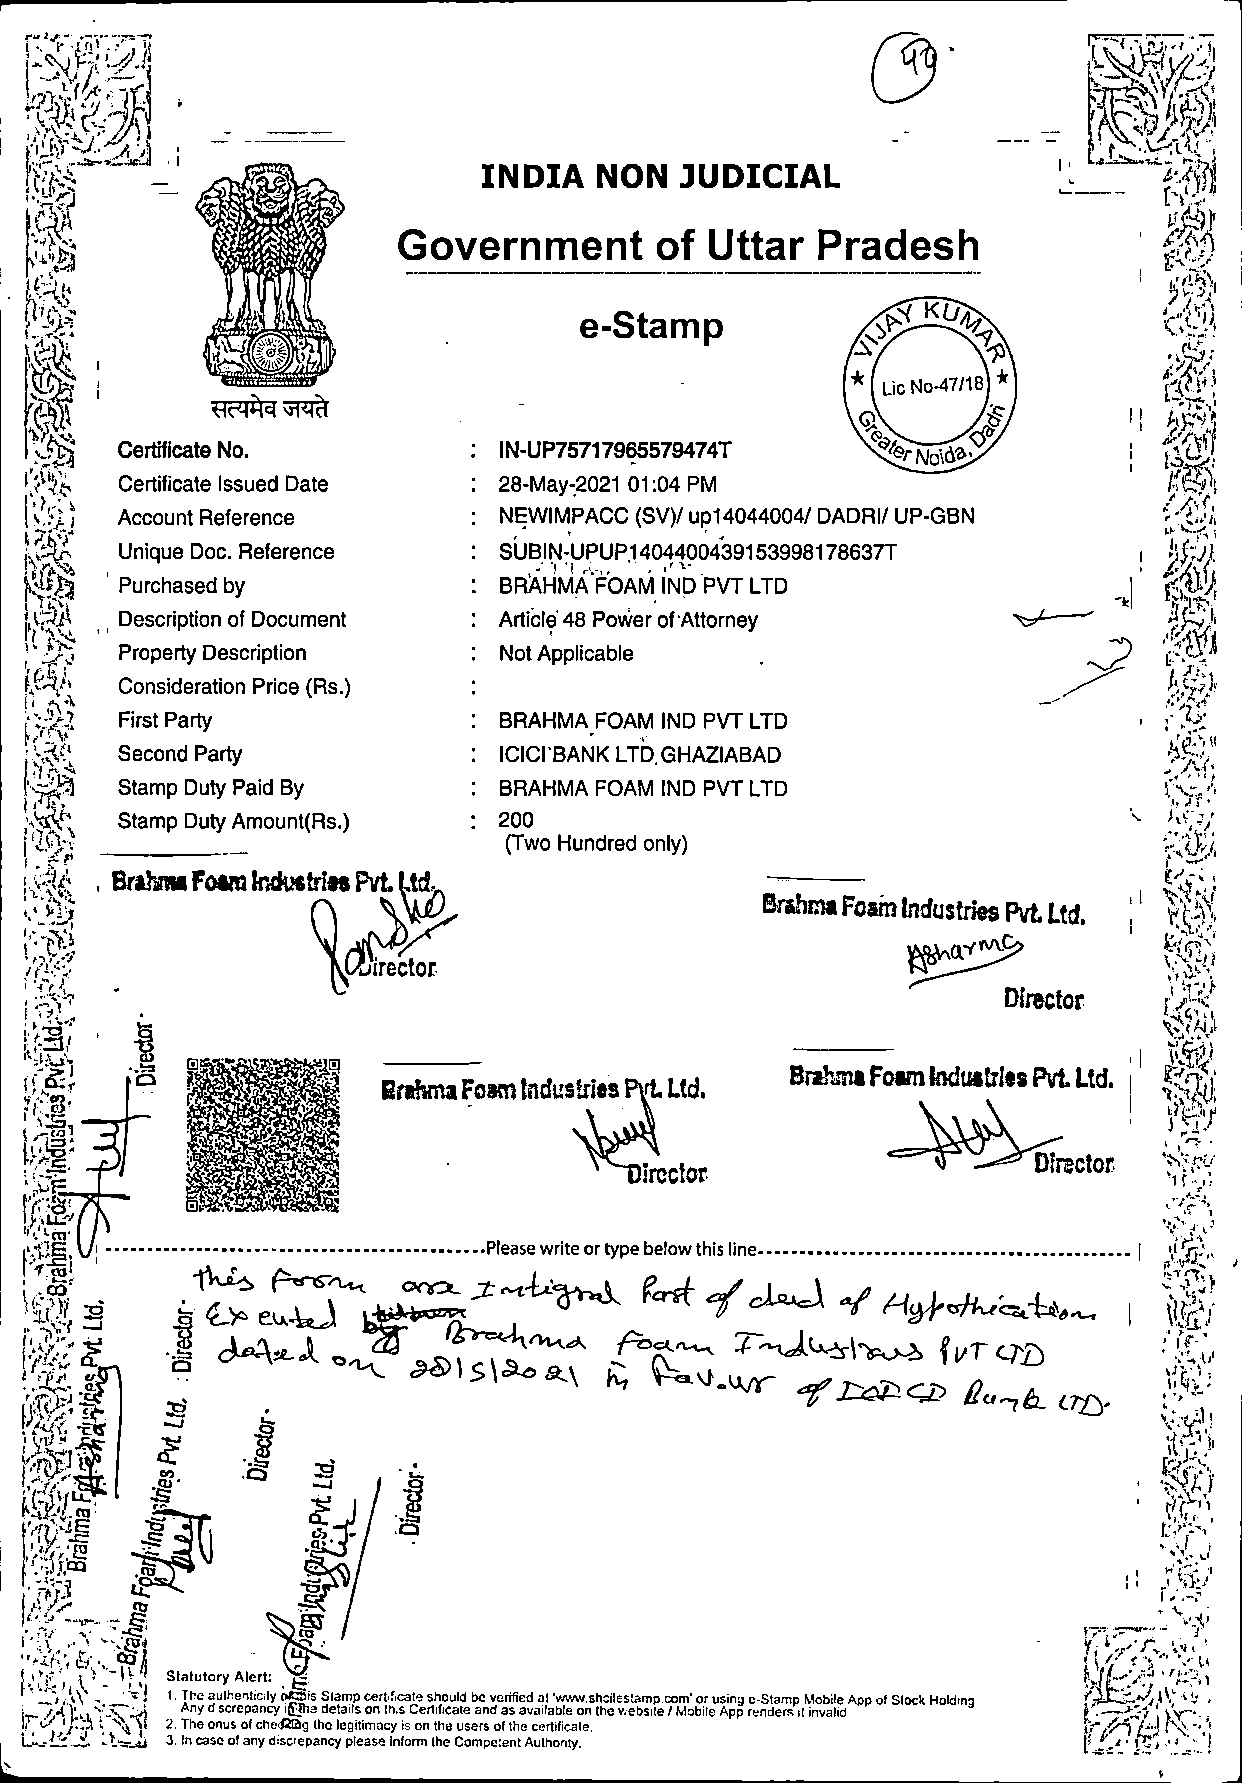 49
INDIA NON JUDICIAL
Government of Uttar Pradesh
e-Stamp
सत्यमेव जयते
VIJAY KUMAR
Lic No-47/18
Greater Noida, Dadri
Certificate No. : IN-UP75717965579474T
Certificate Issued Date : 28-May-2021 01:04 PM
Account Reference : NEWIMPACC (SV)/ up14044004/ DADRI/ UP-GBN
Unique Doc. Reference : SUBIN-UPUP1404400439153998178637T
Purchased by : BRAHMA FOAM IND PVT LTD
Description of Document : Article 48 Power of Attorney
Property Description : Not Applicable
Consideration Price (Rs.) :
First Party : BRAHMA FOAM IND PVT LTD
Second Party : ICICI BANK LTD GHAZIABAD
Stamp Duty Paid By : BRAHMA FOAM IND PVT LTD
Stamp Duty Amount(Rs.) : 200
(Two Hundred only)
Brahma Foam Industries Pvt. Ltd.
Director
Brahma Foam Industries Pvt. Ltd.
Asharma
Director
Brahma Foam Industries Pvt. Ltd.
Director
Brahma Foam Industries Pvt. Ltd.
Director
Brahma Foam Industries Pvt. Ltd.
Director
Please write or type below this line
this Form are Intigral Part of deed of Hypothication
Exeuted Brahma Foam Industries PVT LTD
dated on 28/5/2021 in favour of Bank LTD.
Brahma Foam Industries Pvt. Ltd.
Asharma
Director
Brahma Foam Industries Pvt. Ltd.
Director
Brahma Foam Industries Pvt. Ltd.
Director
Statutory Alert:
1. The authenticity of this Stamp certificate should be verified at 'www.shcilestamp.com' or using e-Stamp Mobile App of Stock Holding
Any discrepancy in the details on this Certificate and as available on the website / Mobile App renders it invalid
2. The onus of checking the legitimacy is on the users of the certificate.
3. In case of any discrepancy please inform the Competent Authority.